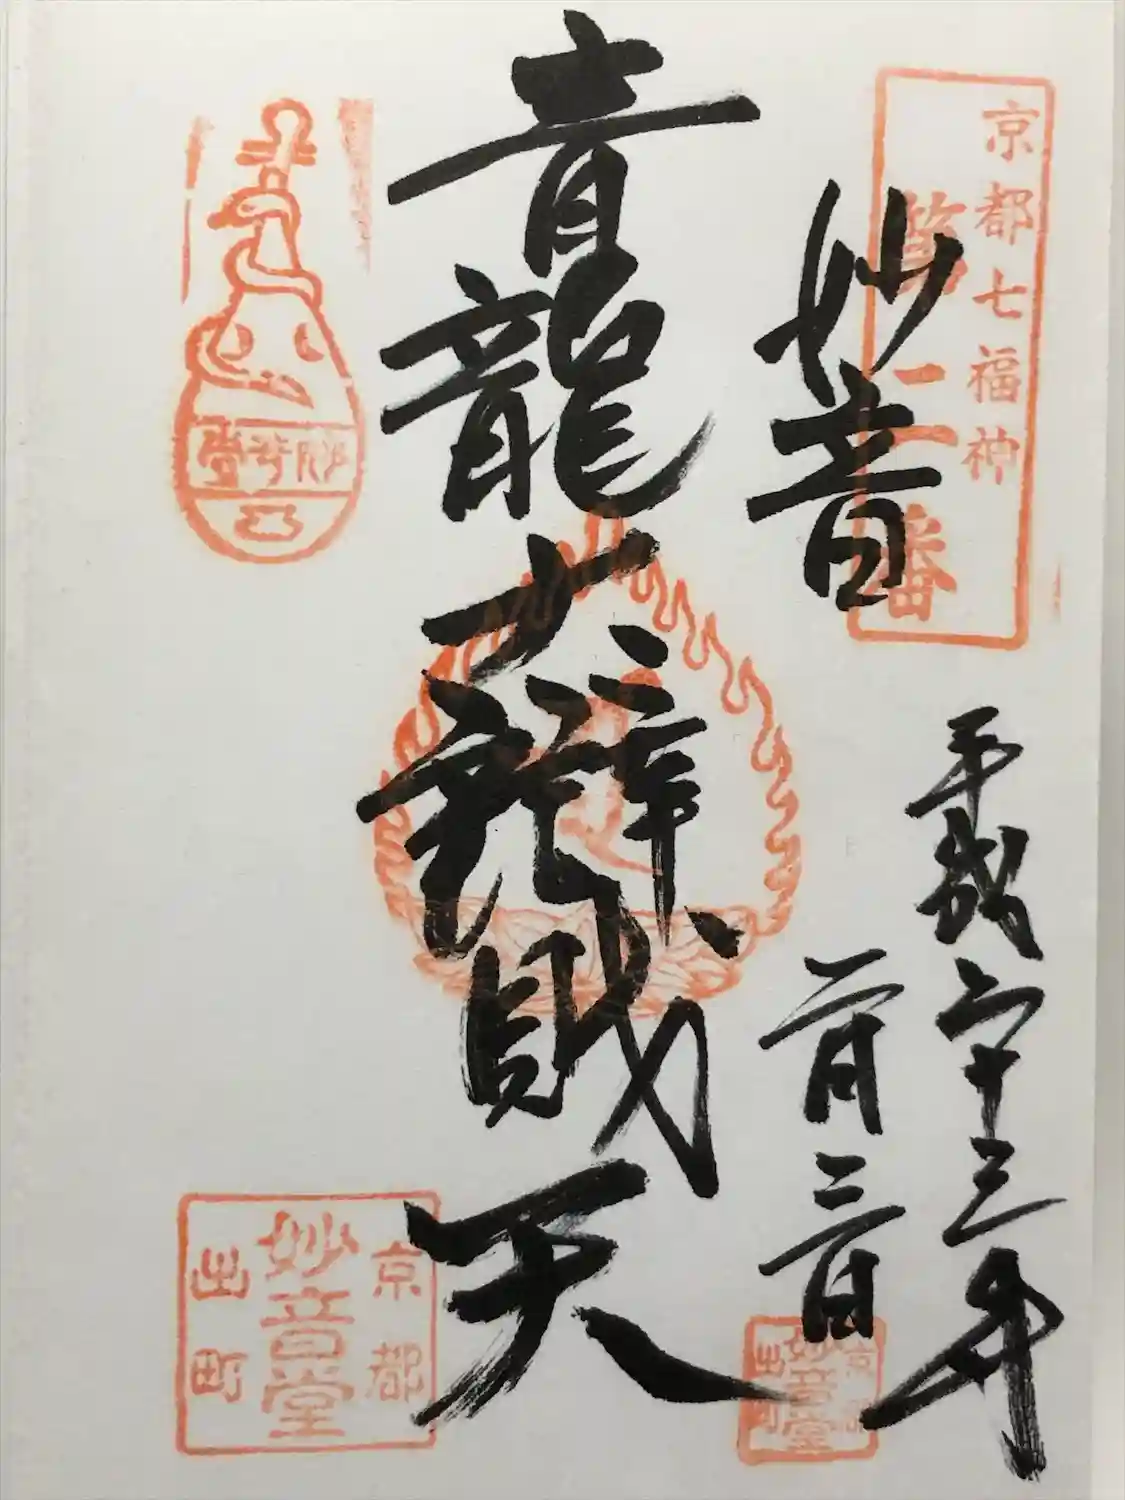 京都七福神
第二番
妙音
平成二十三年
二月三日
青龍大辯財天
妙音堂
京都
妙音堂
出町
京都
妙音堂
出町